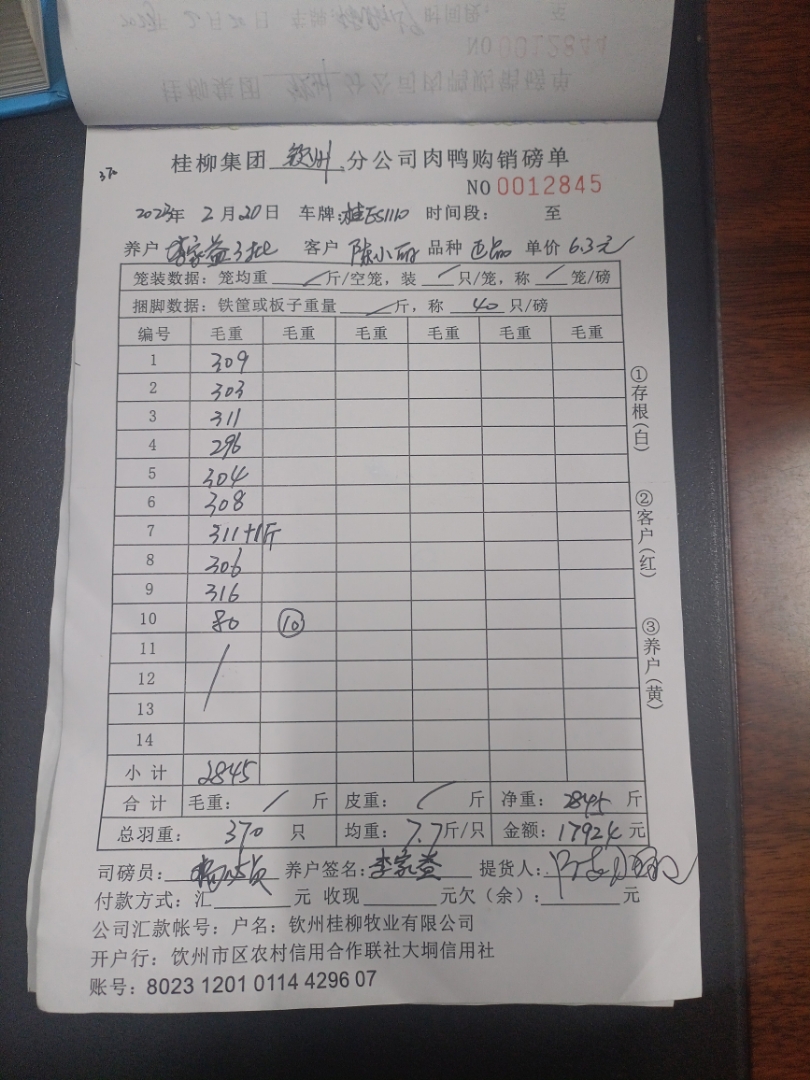 370
桂柳集团 钦州 分公司肉鸭购销磅单
NO 0012845
2023年 2月20日 车牌:桂E51110 时间段: 至
养户 李家益3批 客户 陈小丽 品种 正品 单价 6.3元
笼装数据:笼均重 / 斤/空笼,装 / 只/笼,称 / 笼/磅
捆脚数据:铁筐或板子重量 / 斤,称 40 只/磅
编号 毛重 毛重 毛重 毛重 毛重 毛重
1 309
2 303
3 311
4 296
5 304
6 308
7 311+1斤
8 306
9 316
10 80 ⑩
11
12
13
14
小计 2845
合计 毛重: / 斤 皮重: / 斤 净重: 2845 斤
总羽重: 370 只 均重: 7.7斤/只 金额: 17924元
司磅员: 养户签名: 李家益 提货人:
付款方式:汇 元 收现 元欠(余): 元
公司汇款帐号:户名:钦州桂柳牧业有限公司
开户行:钦州市区农村信用合作联社大垌信用社
账号:8023 1201 0114 4296 07
①存根(白)
②客户(红)
③养户(黄)
NO 0012844